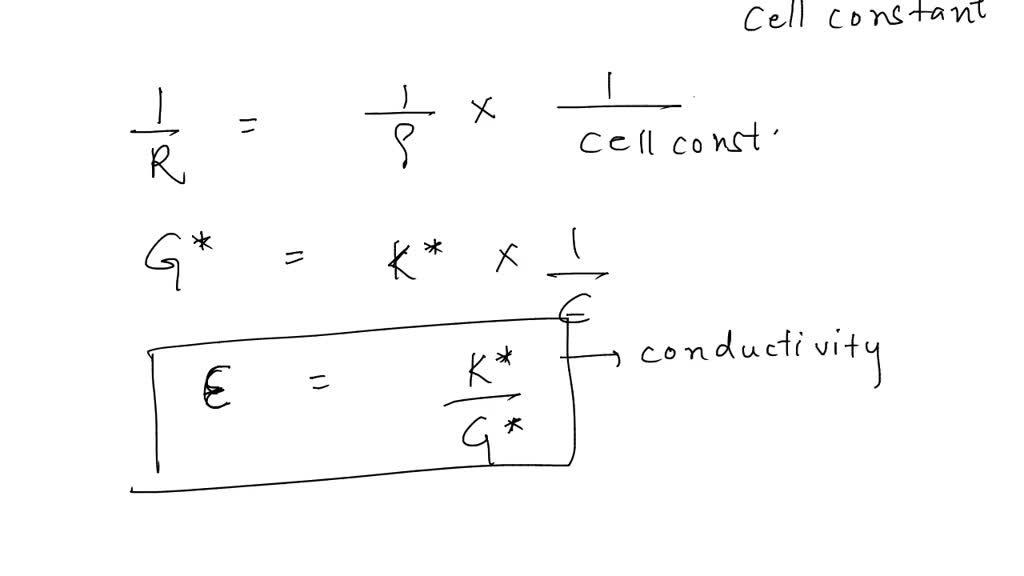 cell constant
1/R = 1/ρ × 1/cell const.
G* = K* × 1/ε
ε = K*/G* → conductivity